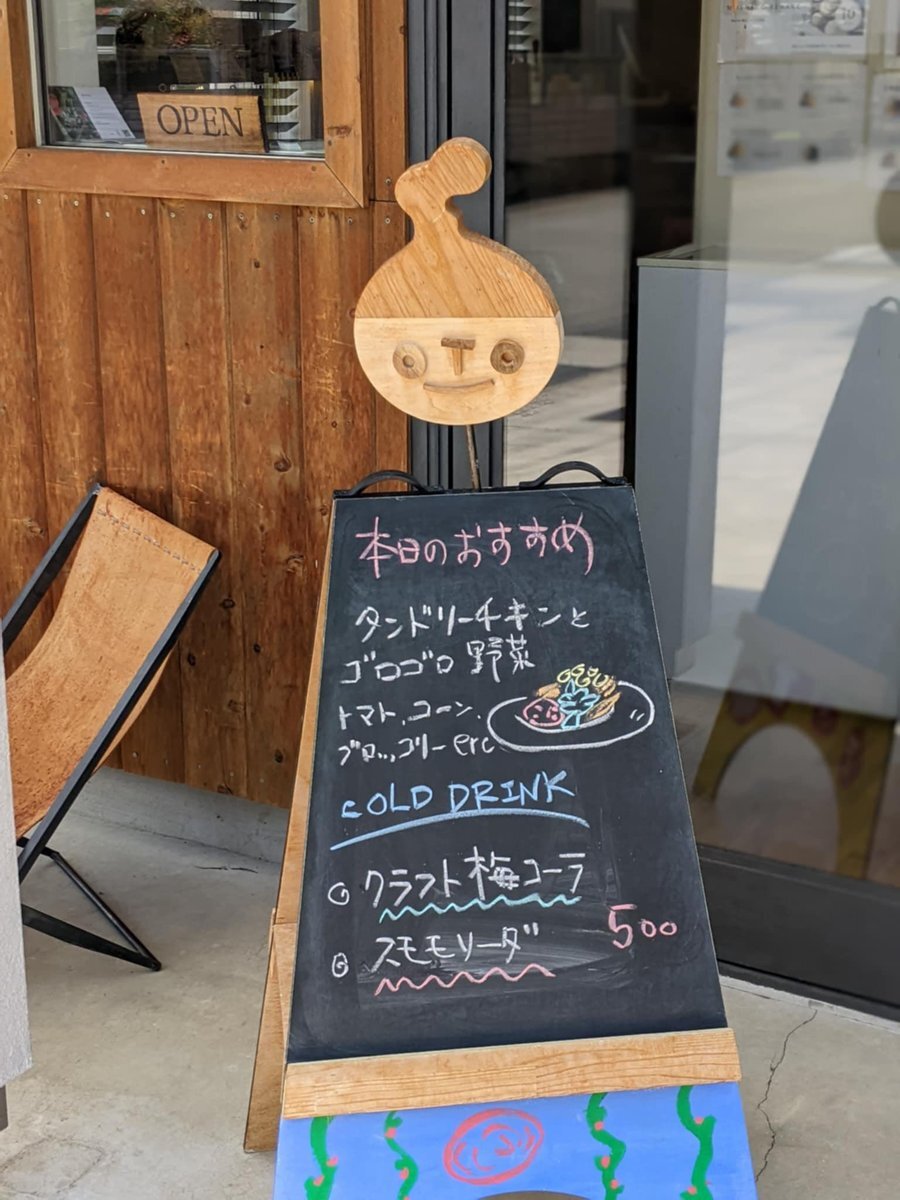 OPEN
本日のおすすめ
タンドリーチキンと
ゴロゴロ 野菜
トマト、コーン、
ブロッコリー etc
COLD DRINK
クラフト梅コーラ
スモモソーダ 500